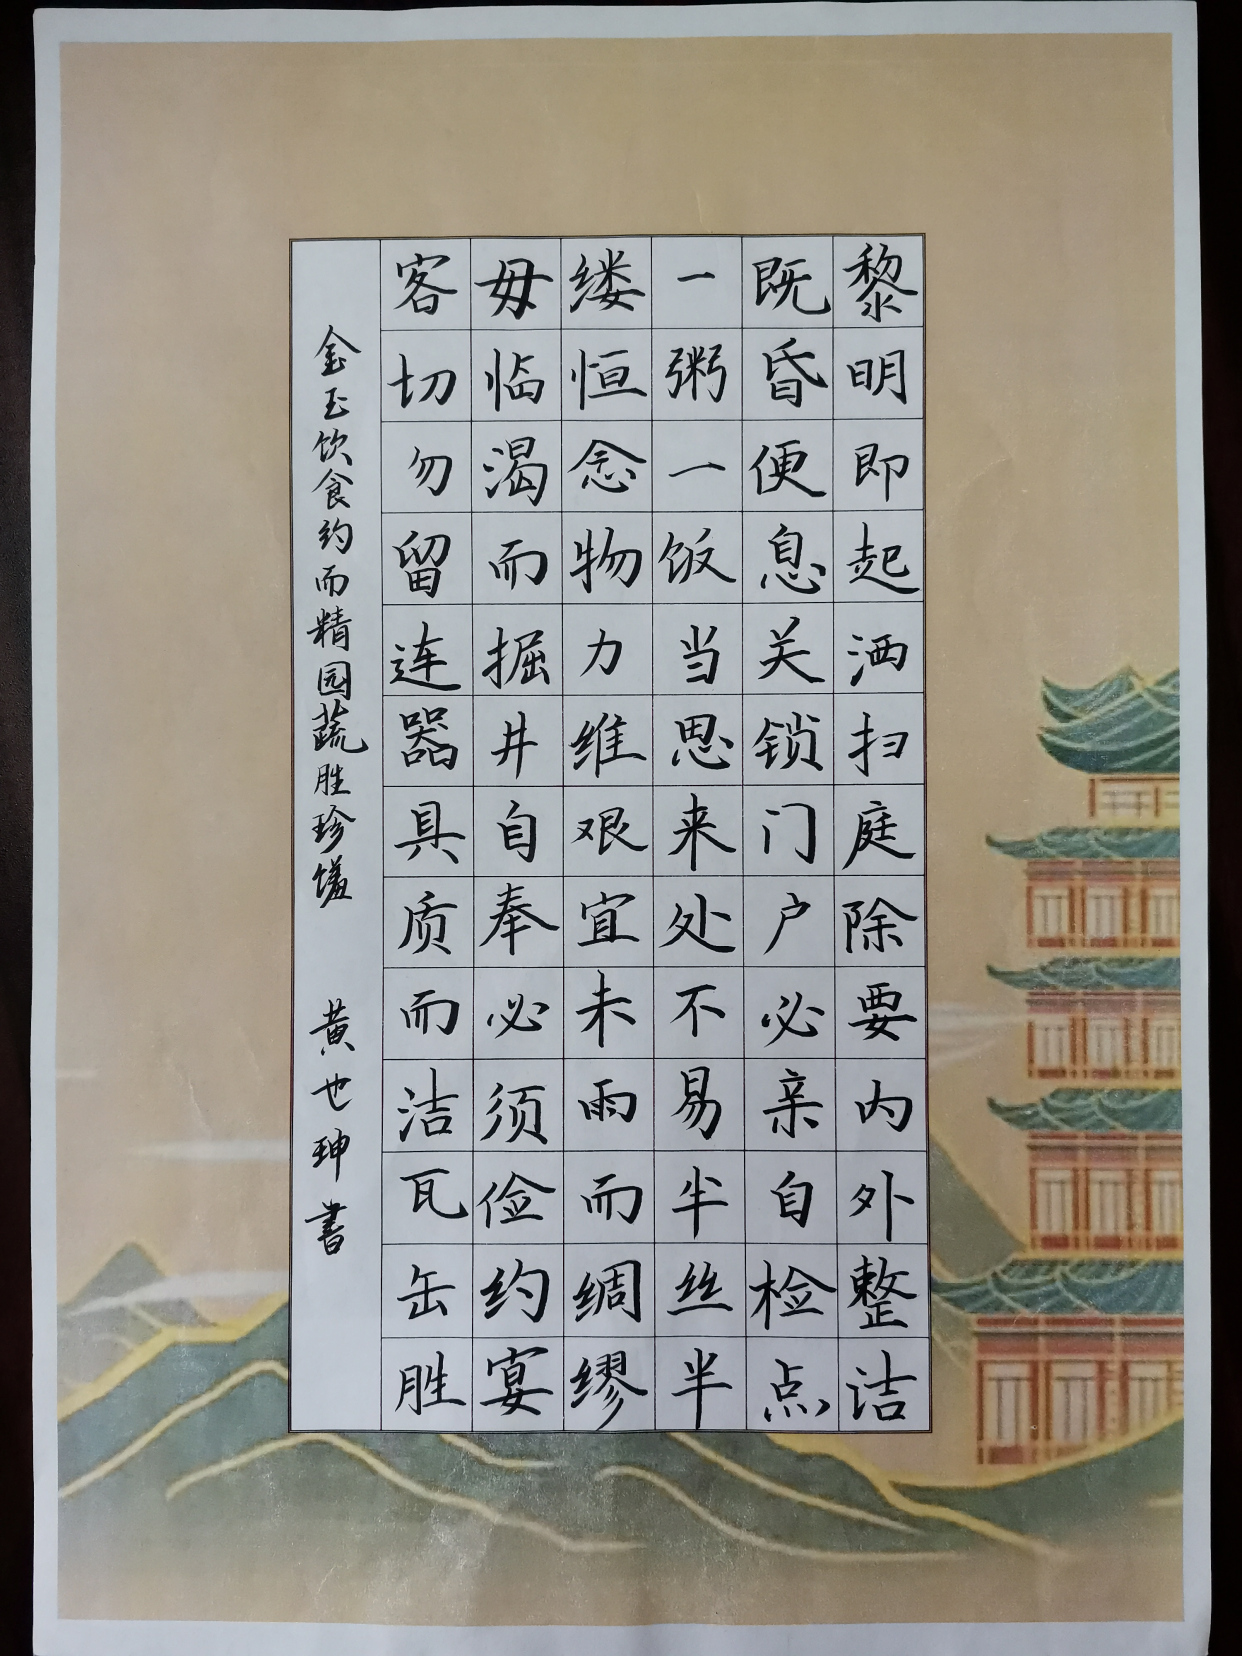 黎明即起洒扫庭除要内外整洁
既昏便息关锁门户必亲自检点
一粥一饭当思来处不易半丝半
缕恒念物力维艰宜未雨而绸缪
毋临渴而掘井自奉必须俭约宴
客切勿留连器具质而洁瓦缶胜
金玉饮食约而精园蔬胜珍馐
黄也珅書